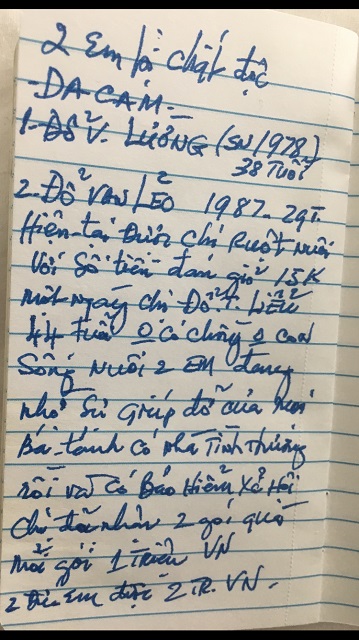 2 Em bị chất độc
-DA-CAM-
1-Đỗ V. LƯỠNG (SN 1978)
38 Tuổi
2-Đỗ VAN LEO 1987-29T.
Hiện tại Được Chị Ruột nuôi
Với Số tiền đan giỏ 15K
một ngày chị Đỗ.T. LIỄU
44 tuổi 0 có chồng 0 con
Sống nuôi 2 EM đang
nhờ Sự giúp đỡ của
Bá-tánh có nhà Tình thương
rồi và có Bảo Hiểm Xã Hội
chị đã nhận 2 gói quà
mỗi gói 1 Triệu VN
2 Em được 2 TR. VN.